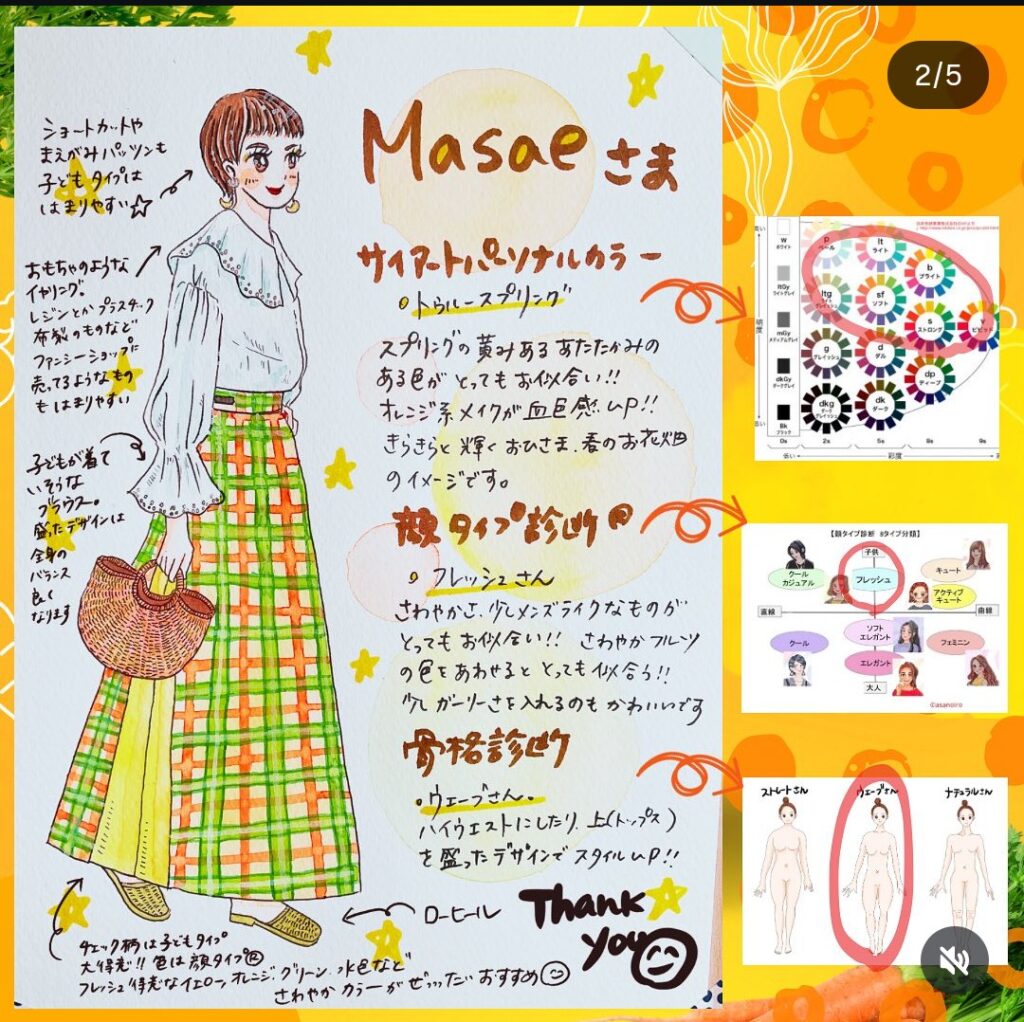 2/5
Masae さま
ショートカットや
まえがみパッツンも
子どもタイプは
はまりやすい☆
おもちゃのような
イヤリング!
レジンとかプラスチック
布製のものなど
ファンシーショップに
売ってるようなもの
もはまりやすい
子どもが着て
いそうな
ブラウス。
盛ったデザインは
全身の
バランス
良く
なります
サイアートパーソナルカラー
・トゥルースプリング
スプリングの黄みあるあたたかみの
ある色がとってもお似合い!!
オレンジ系メイクが血色感UP!!
きらきらと輝くおひさま、春のお花畑
のイメージです。
顔タイプ診断®
・フレッシュさん
さわやかさ、少しメンズライクなものが
とってもお似合い!! さわやかフルーツ
の色をあわせるととっても似合う!!
少しガーリーさを入れるのもかわいいです
骨格診断
・ウェーブさん。
ハイウエストにしたり、上(トップス)
を盛ったデザインでスタイルUP!!
ローヒール
Thank
you
チェック柄は子どもタイプ
大得意!! 色は顔タイプ®
フレッシュ得意なイエロー、オレンジ、グリーン、水色など
さわやかカラーがぜっったいおすすめ
W
ホワイト
ltGy
ライトグレイ
mGy
ミディアムグレイ
dkGy
ダークグレイ
Bk
ブラック
高い
明度
低い
p
ペール
lt
ライト
b
ブライト
ltg
ライト
グレイッシュ
sf
ソフト
s
ストロング
v
ビビッド
g
グレイッシュ
d
ダル
dp
ディープ
dkg
ダーク
グレイッシュ
dk
ダーク
0s
2s
5s
8s
9s
低い
彩度
高い
【顔タイプ診断 8タイプ分類】
子供
クール
カジュアル
フレッシュ
キュート
アクティブ
キュート
直線
曲線
クール
ソフト
エレガント
フェミニン
エレガント
大人
©asanoiro
ストレートさん
ウェーブさん
ナチュラルさん